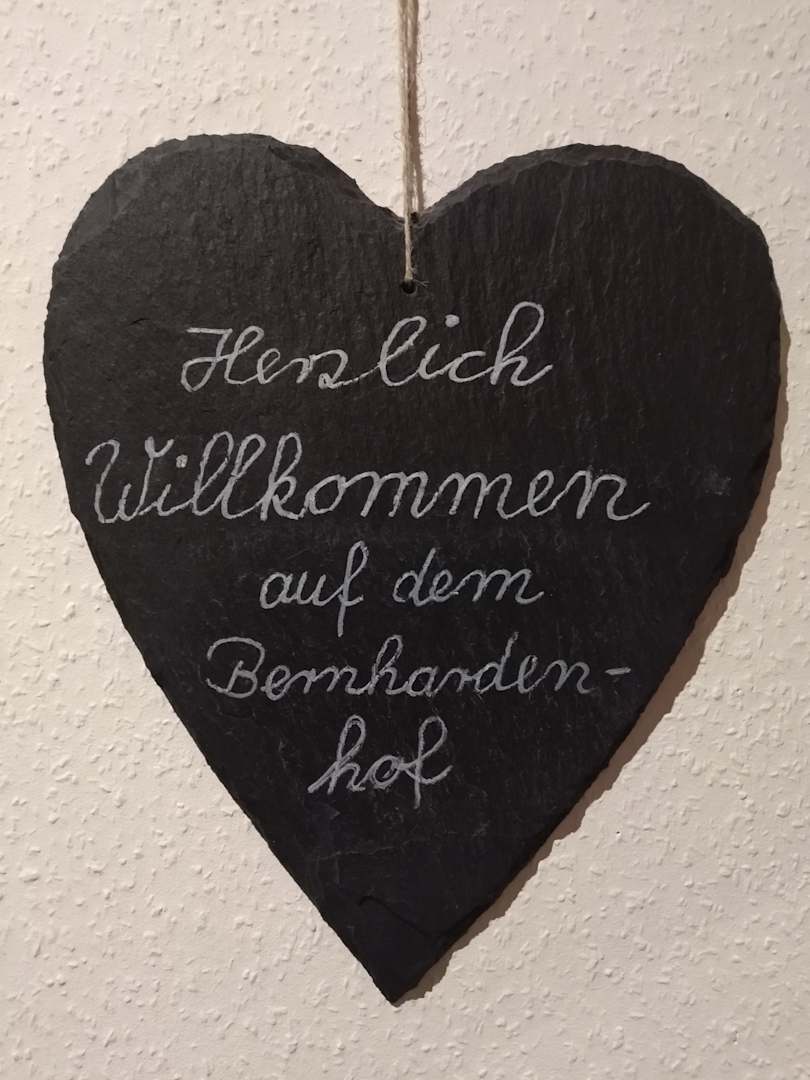 Herzlich
Willkommen
auf dem
Bernharden-
hof